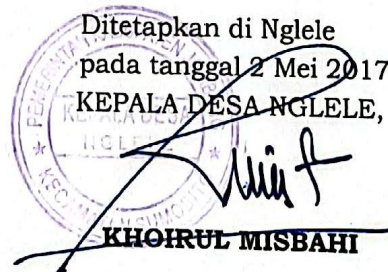 Ditetapkan di Nglele
pada tanggal 2 Mei 2017
KEPALA DESA NGLELE,
KEPALA DESA
NGLELE
KHOIRUL MISBAHI